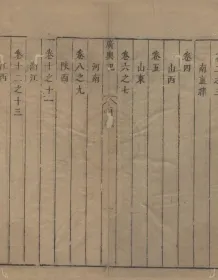 南直隸
卷四
山西
卷五
山東
卷六之七
廣輿記
河南
卷八之九
陝西
卷十之十一
浙江
卷十二之十三
江西